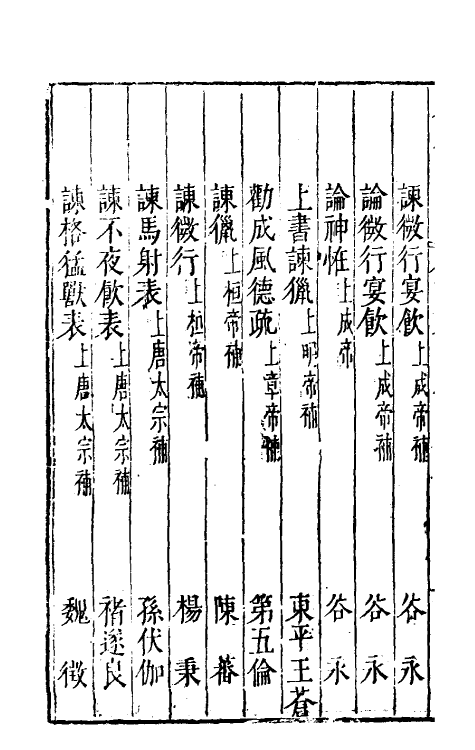 諫微行宴飲上成帝補 谷永
論微行宴飲上成帝補 谷永
論神怪上成帝 谷永
上書諫獵上明帝補 東平王蒼
勸成風德疏上章帝補 第五倫
諫獵上桓帝補 陳蕃
諫微行上桓帝補 楊秉
諫馬射表上唐太宗補 孫伏伽
諫不夜飲表上唐太宗補 褚遂良
諫格猛獸表上唐太宗補 魏徵